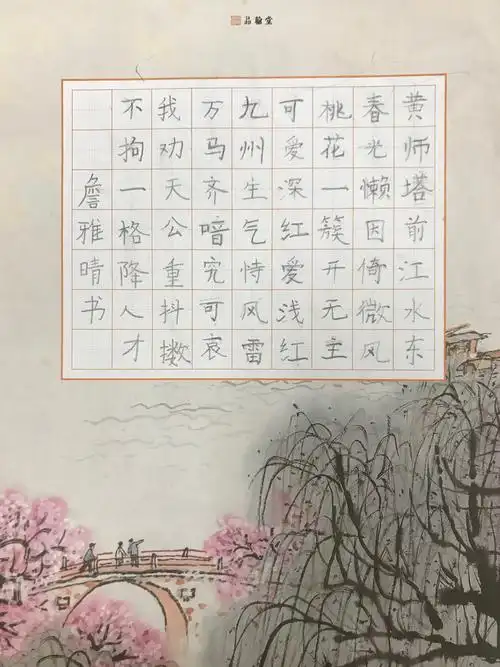 品翰堂
黄师塔前江水东
春光懒因倚微风
桃花一簇开无主
可爱深红爱浅红
九州生气恃风雷
万马齐喑究可哀
我劝天公重抖擞
不拘一格降人才
詹雅晴书